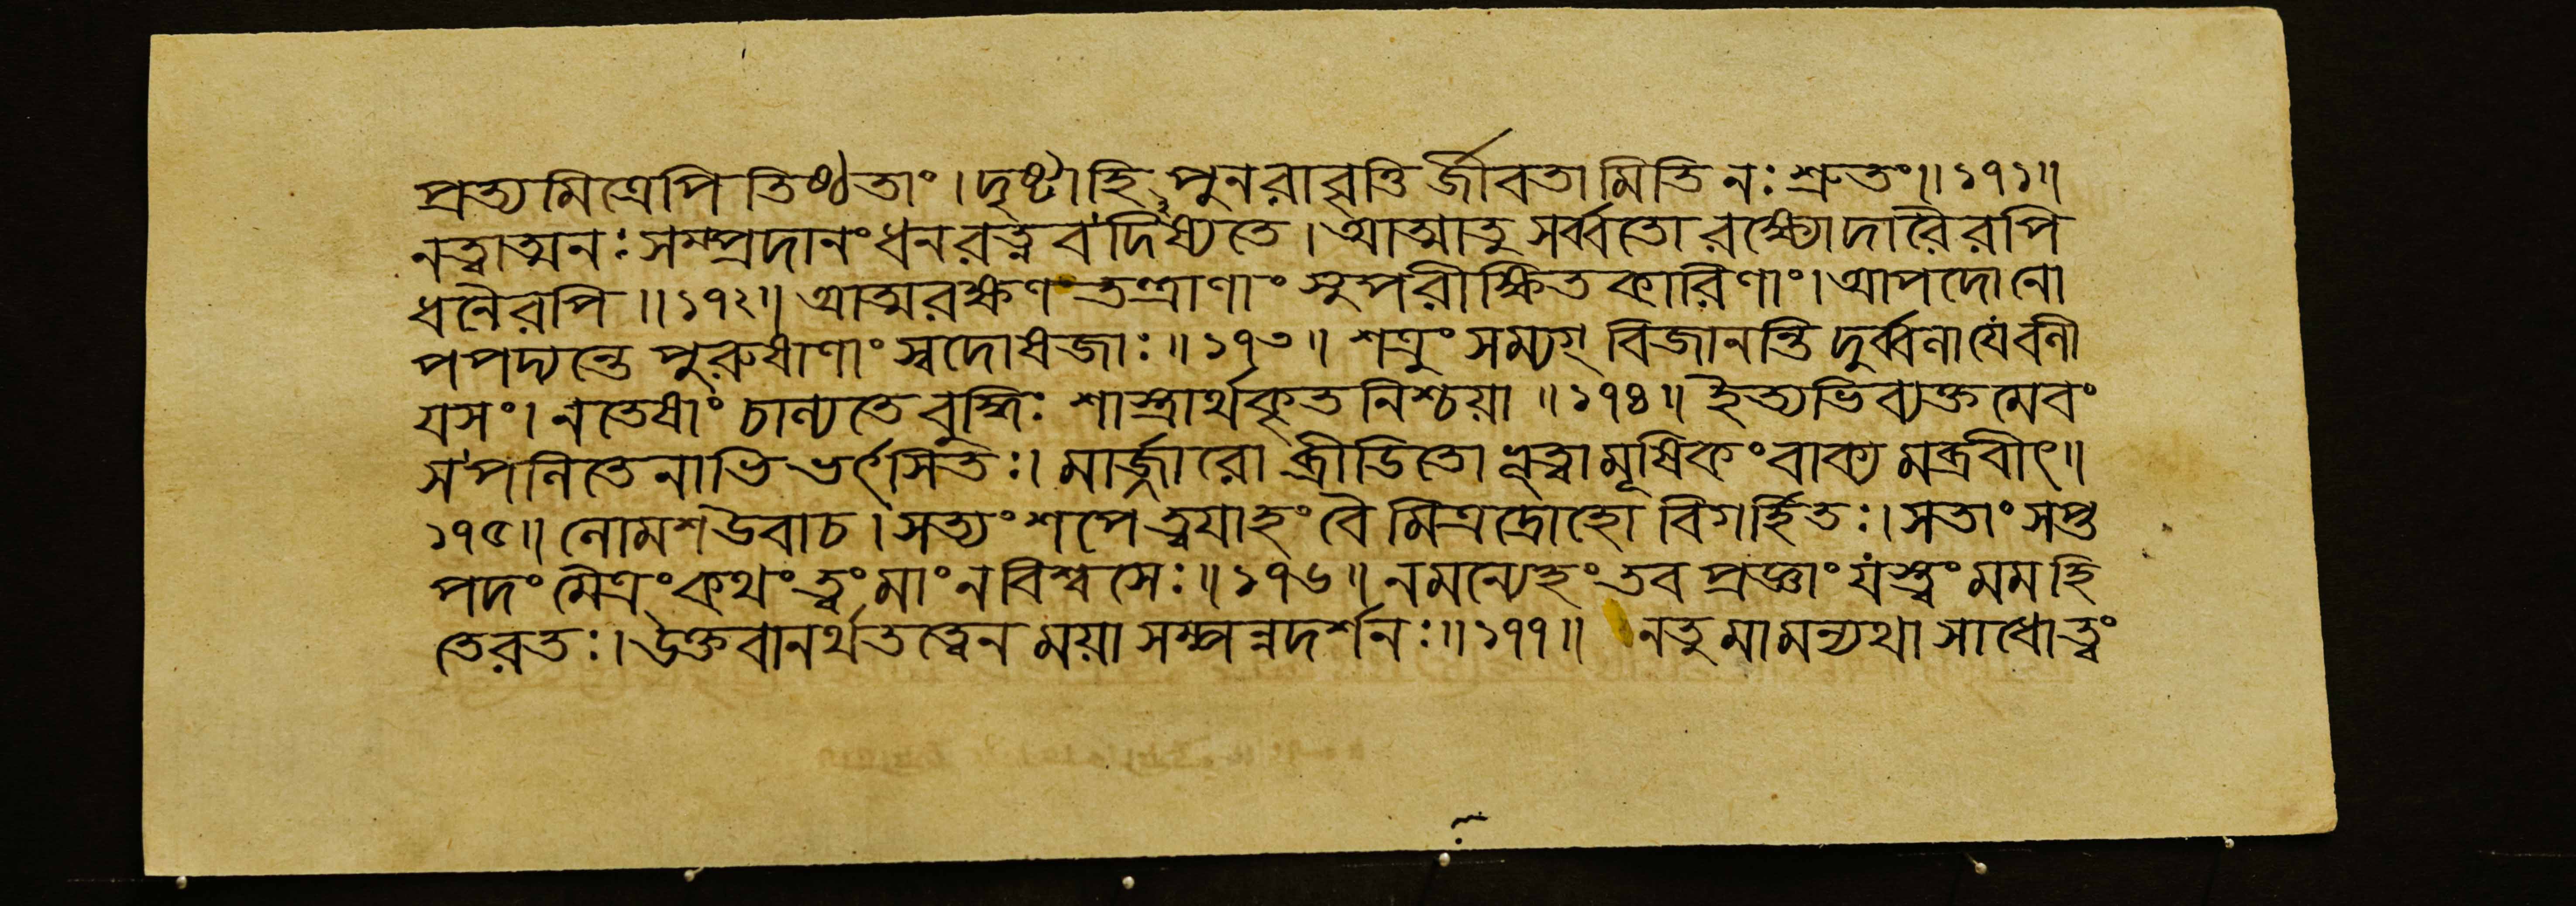 প্রত্যমিত্রেপি তিষ্ঠতাং।দৃষ্টাহি পুনরাবৃত্তি র্জীবতামিতি নঃ শ্রুতং॥১৭১॥
নত্বাত্মনঃ সম্প্রদানং ধনরত্নবদিষ্যতে।আত্মাতু সর্ব্বতো রক্ষ্যোদারৈরপি
ধনৈরপি॥১৭২॥আত্মরক্ষণতন্ত্রাণাং সুপরীক্ষিতকারিণাং।আপদোনো
পপদ্যন্তে পুরুষাণাং স্বদোষজাঃ॥১৭৩॥শত্রুং সম্যগ্ বিজানন্তি দুর্ব্বলাযেবলী
যসং।নতেষাং চাল্যতে বুদ্ধিঃ শাস্ত্রার্থকৃতনিশ্চয়া॥১৭৪॥ইত্যভিব্যক্তমেবং
সপলিতেনাভিভর্ৎসিতঃ।মার্জ্জারো ব্রীডিতো ভূত্বামূষিকং বাক্যমব্রবীৎ॥
১৭৫॥লোমশউবাচ।সত্যং শপে ত্বয়াহং বৈ মিত্রদ্রোহো বিগর্হিতঃ।সতাং সপ্ত
পদং মৈত্রং কথং ত্বং মাং নবিশ্বসেঃ॥১৭৬॥নমন্যেহং তব প্রজ্ঞাং যস্ত্বং মমহি
তেরতঃ।উক্তবানর্থতত্ত্বেন ময়া সম্পন্নদর্শনঃ॥১৭৭॥নতু মামন্যথা সাধোত্বং